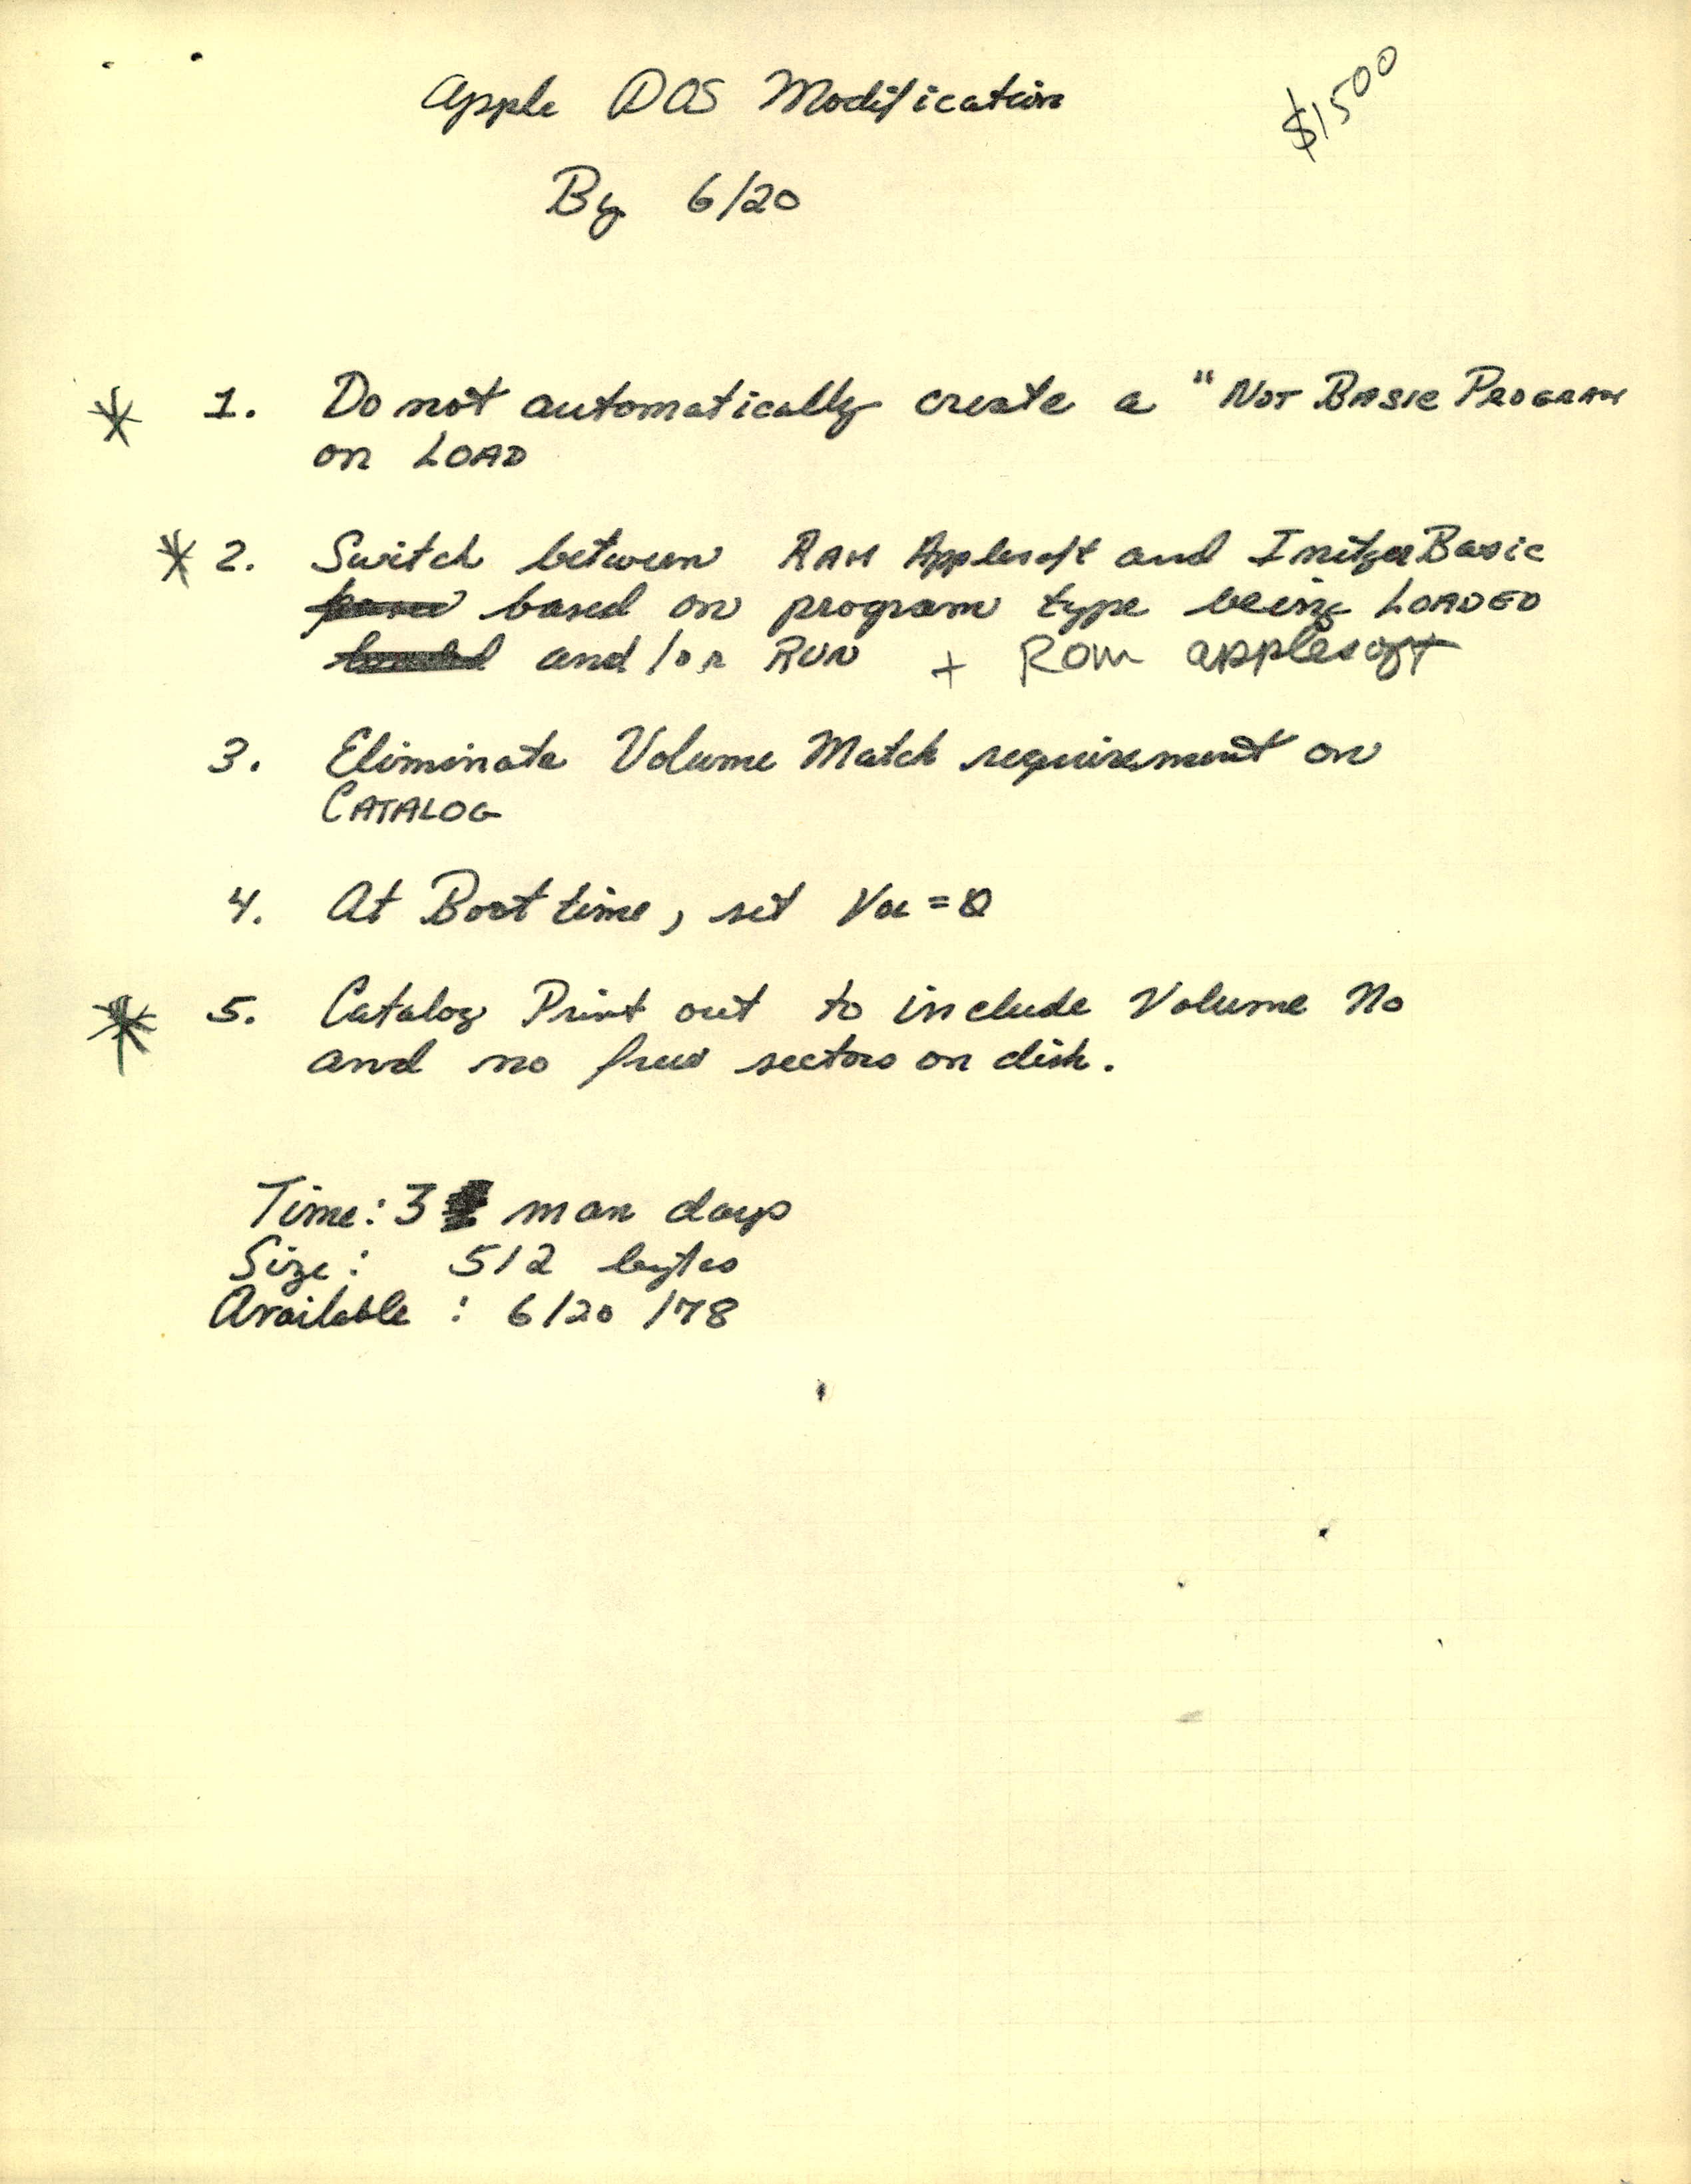 Apple DOS Modification
$1500
By 6/20
* 1. Do not automatically create a "NOT BASIC PROGRAM
on LOAD
* 2. Switch between RAM Applesoft and Integer Basic
based on program type being LOADED
and/or RUN + ROM applesoft
3. Eliminate Volume Match requirement on
CATALOG
4. At Boot time, set Vol = 0
* 5. Catalog Print out to include Volume No
and no free sectors on disk.
Time: 3 man days
Size: 512 bytes
Available : 6/20/78